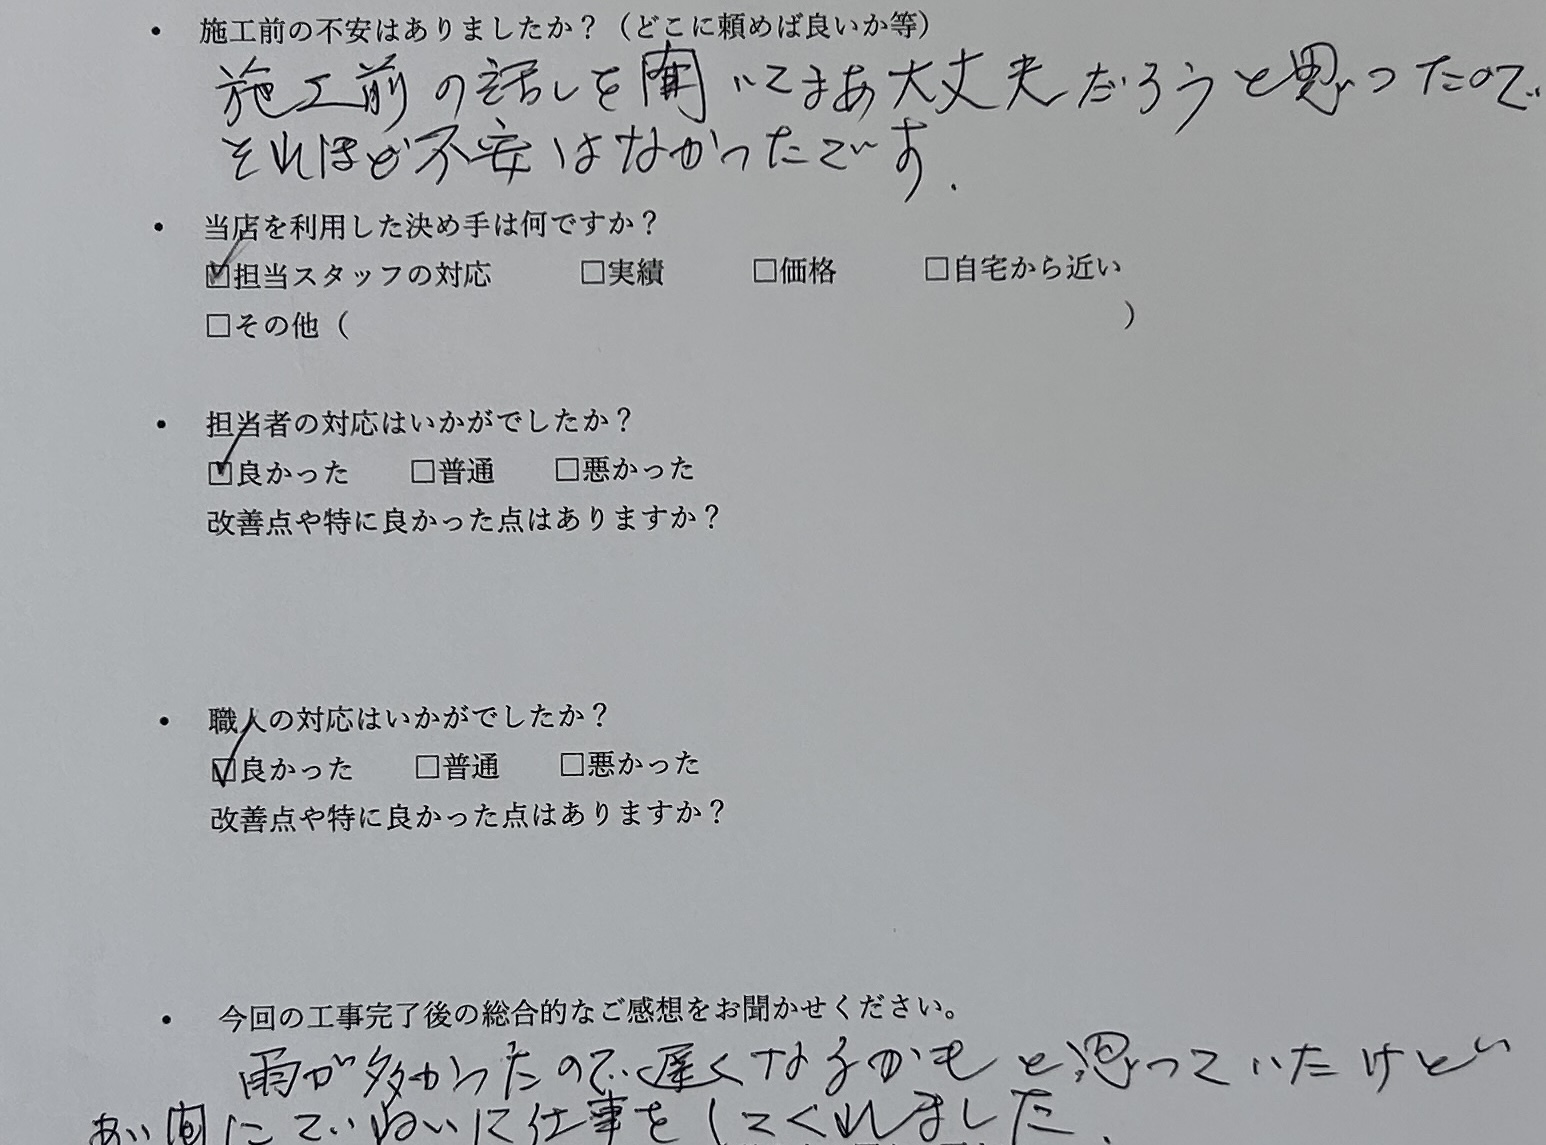 ・ 施工前の不安はありましたか？（どこに頼めば良いか等）
施工前の話しを聞いてまあ大丈夫だろうと思ったので
それほど不安はなかったです.
・ 当店を利用した決め手は何ですか？
☑担当スタッフの対応 □実績 □価格 □自宅から近い
□その他（ ）
・ 担当者の対応はいかがでしたか？
☑良かった □普通 □悪かった
改善点や特に良かった点はありますか？
・ 職人の対応はいかがでしたか？
☑良かった □普通 □悪かった
改善点や特に良かった点はありますか？
・ 今回の工事完了後の総合的なご感想をお聞かせください。
雨が多かったので遅くなるかもと思っていたけど
あい間にていねいに仕事をしてくれました.